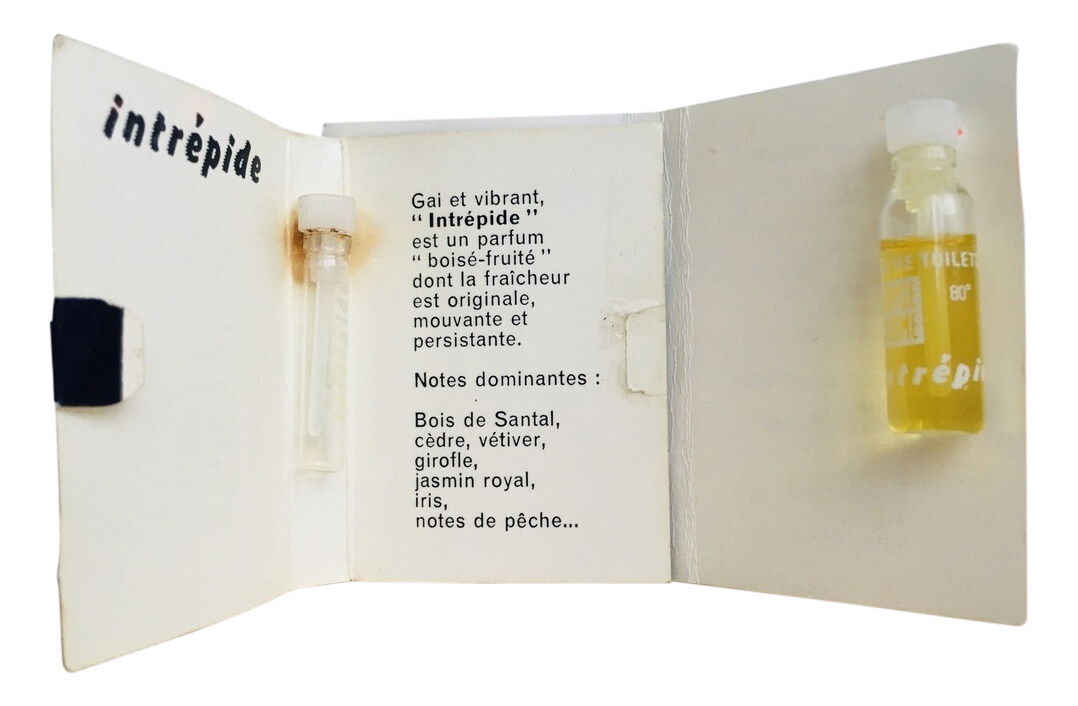 intrépide
Gai et vibrant,
“ Intrépide ”
est un parfum
“ boisé-fruité ”
dont la fraîcheur
est originale,
mouvante et
persistante.
Notes dominantes :
Bois de Santal,
cèdre, vétiver,
girofle,
jasmin royal,
iris,
notes de pêche...
DE TOILET
80°
ntrépi